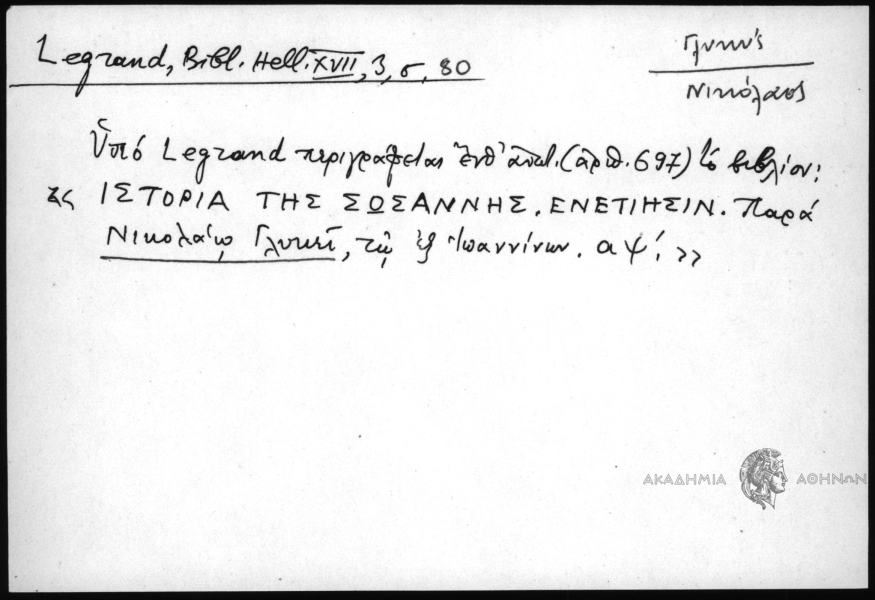 Legrand, Bibl. Hell. XVII, 3, σ, 80
Γλυκύς
Νικόλαος
Ὑπό Legrand περιγράφεται ἐνθ' ἀνωτ. (ἀριθ. 697) τό βιβλίον:
<< ΙΣΤΟΡΙΑ ΤΗΣ ΣΩΣΑΝΝΗΣ. ΕΝΕΤΙΗΣΙΝ. Παρά
Νικολάῳ Γλυκεῖ, τῷ ἐξ Ἰωαννίνων. αψ'. >>
ΑΚΑΔΗΜΙΑ ΑΘΗΝΩΝ